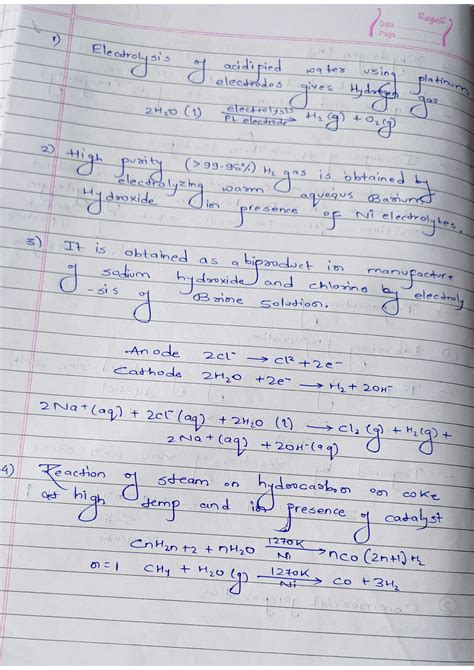 Date
Page
1) Electrolysis of acidified water using platinum
electrodes gives Hydrogen gas
2H₂O (l) electrolysis Pt electrode → H₂(g) + O₂(g)
2) High purity (>99.95%) H₂ gas is obtained by
electrolyzing warm aqueous Barium
Hydroxide in presence of Ni electrolytes.
3) It is obtained as a biproduct in manufacture
of sodium hydroxide and chlorine by electroly
-sis of Brine solution.
Anode 2cl⁻ → Cl² + 2e⁻
Cathode 2H₂O + 2e⁻ → H₂ + 2OH⁻
2Na⁺(aq) + 2cl⁻(aq) + 2H₂O (l) → Cl₂(g) + H₂(g) +
2Na⁺(aq) + 2OH⁻(aq)
4) Reaction of steam on hydrocarbon or coke
at high temp and in presence of catalyst
CnH₂n+2 + nH₂O 1270K Ni → nco (2n+1) H₂
n=1 CH₄ + H₂O(g) 1270K Ni → co + 3H₂